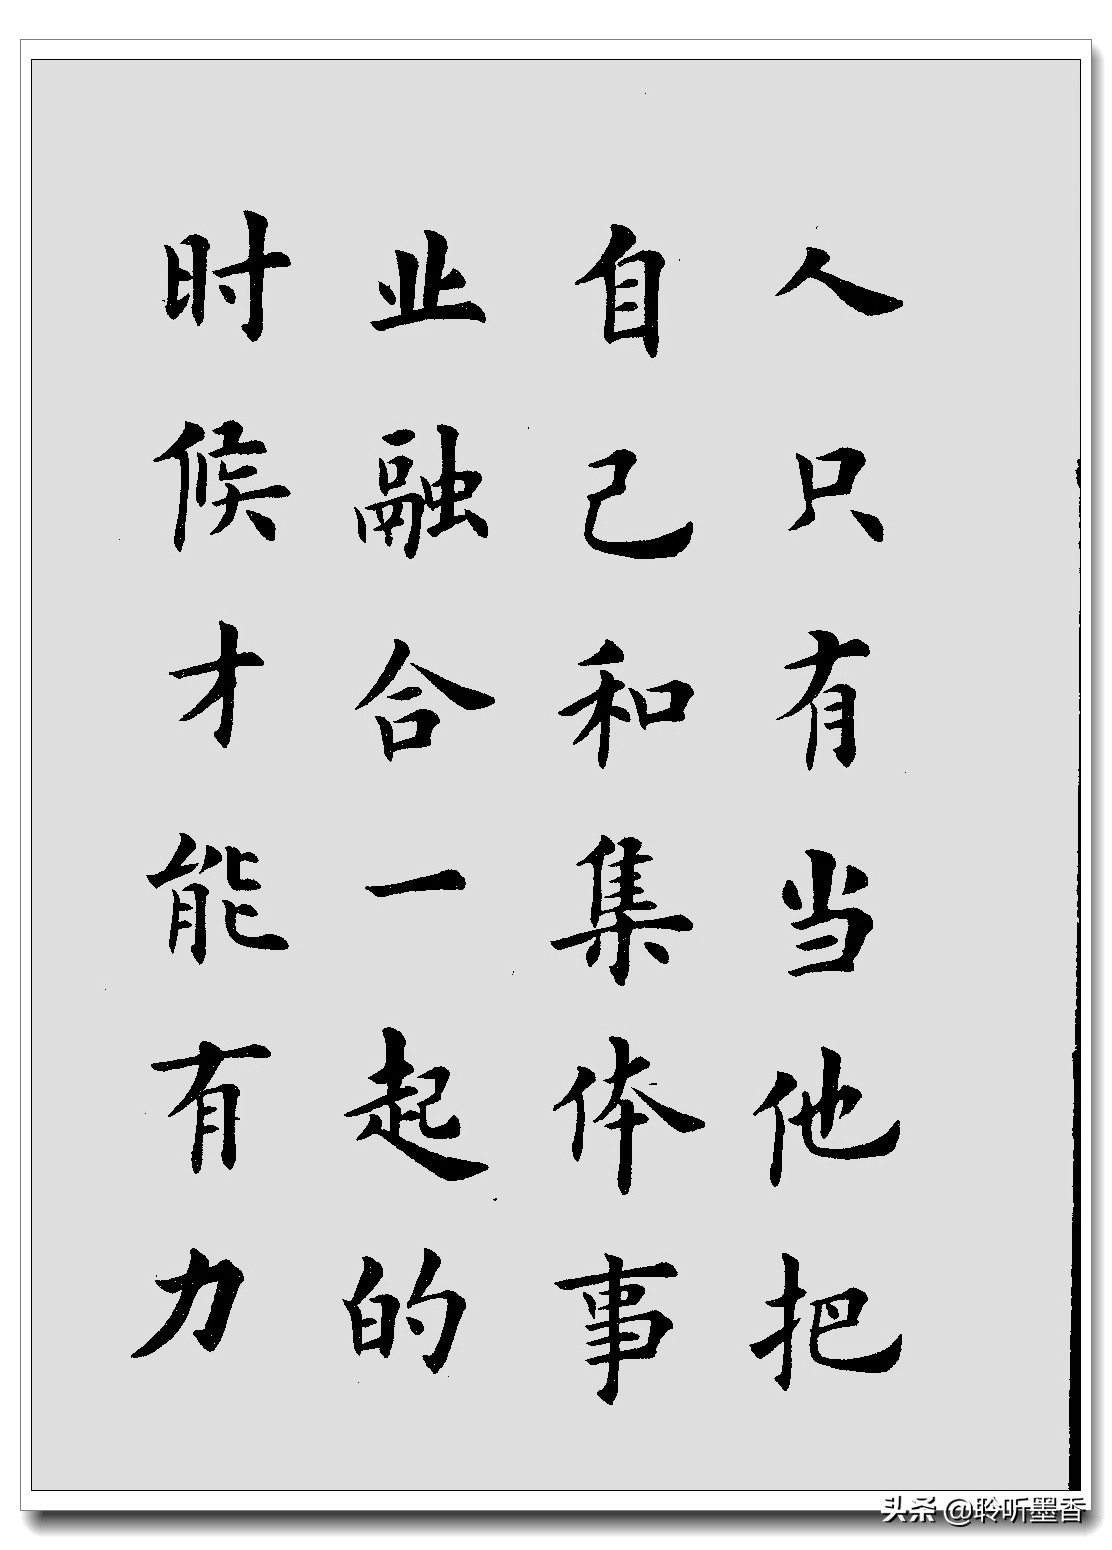 人只有当他把
自己和集体事
业融合一起的
时候才能有力
头条 @聆听墨香